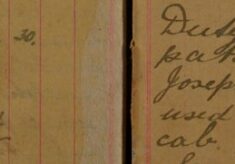 30.
Dut
pat
Josep
used
cab